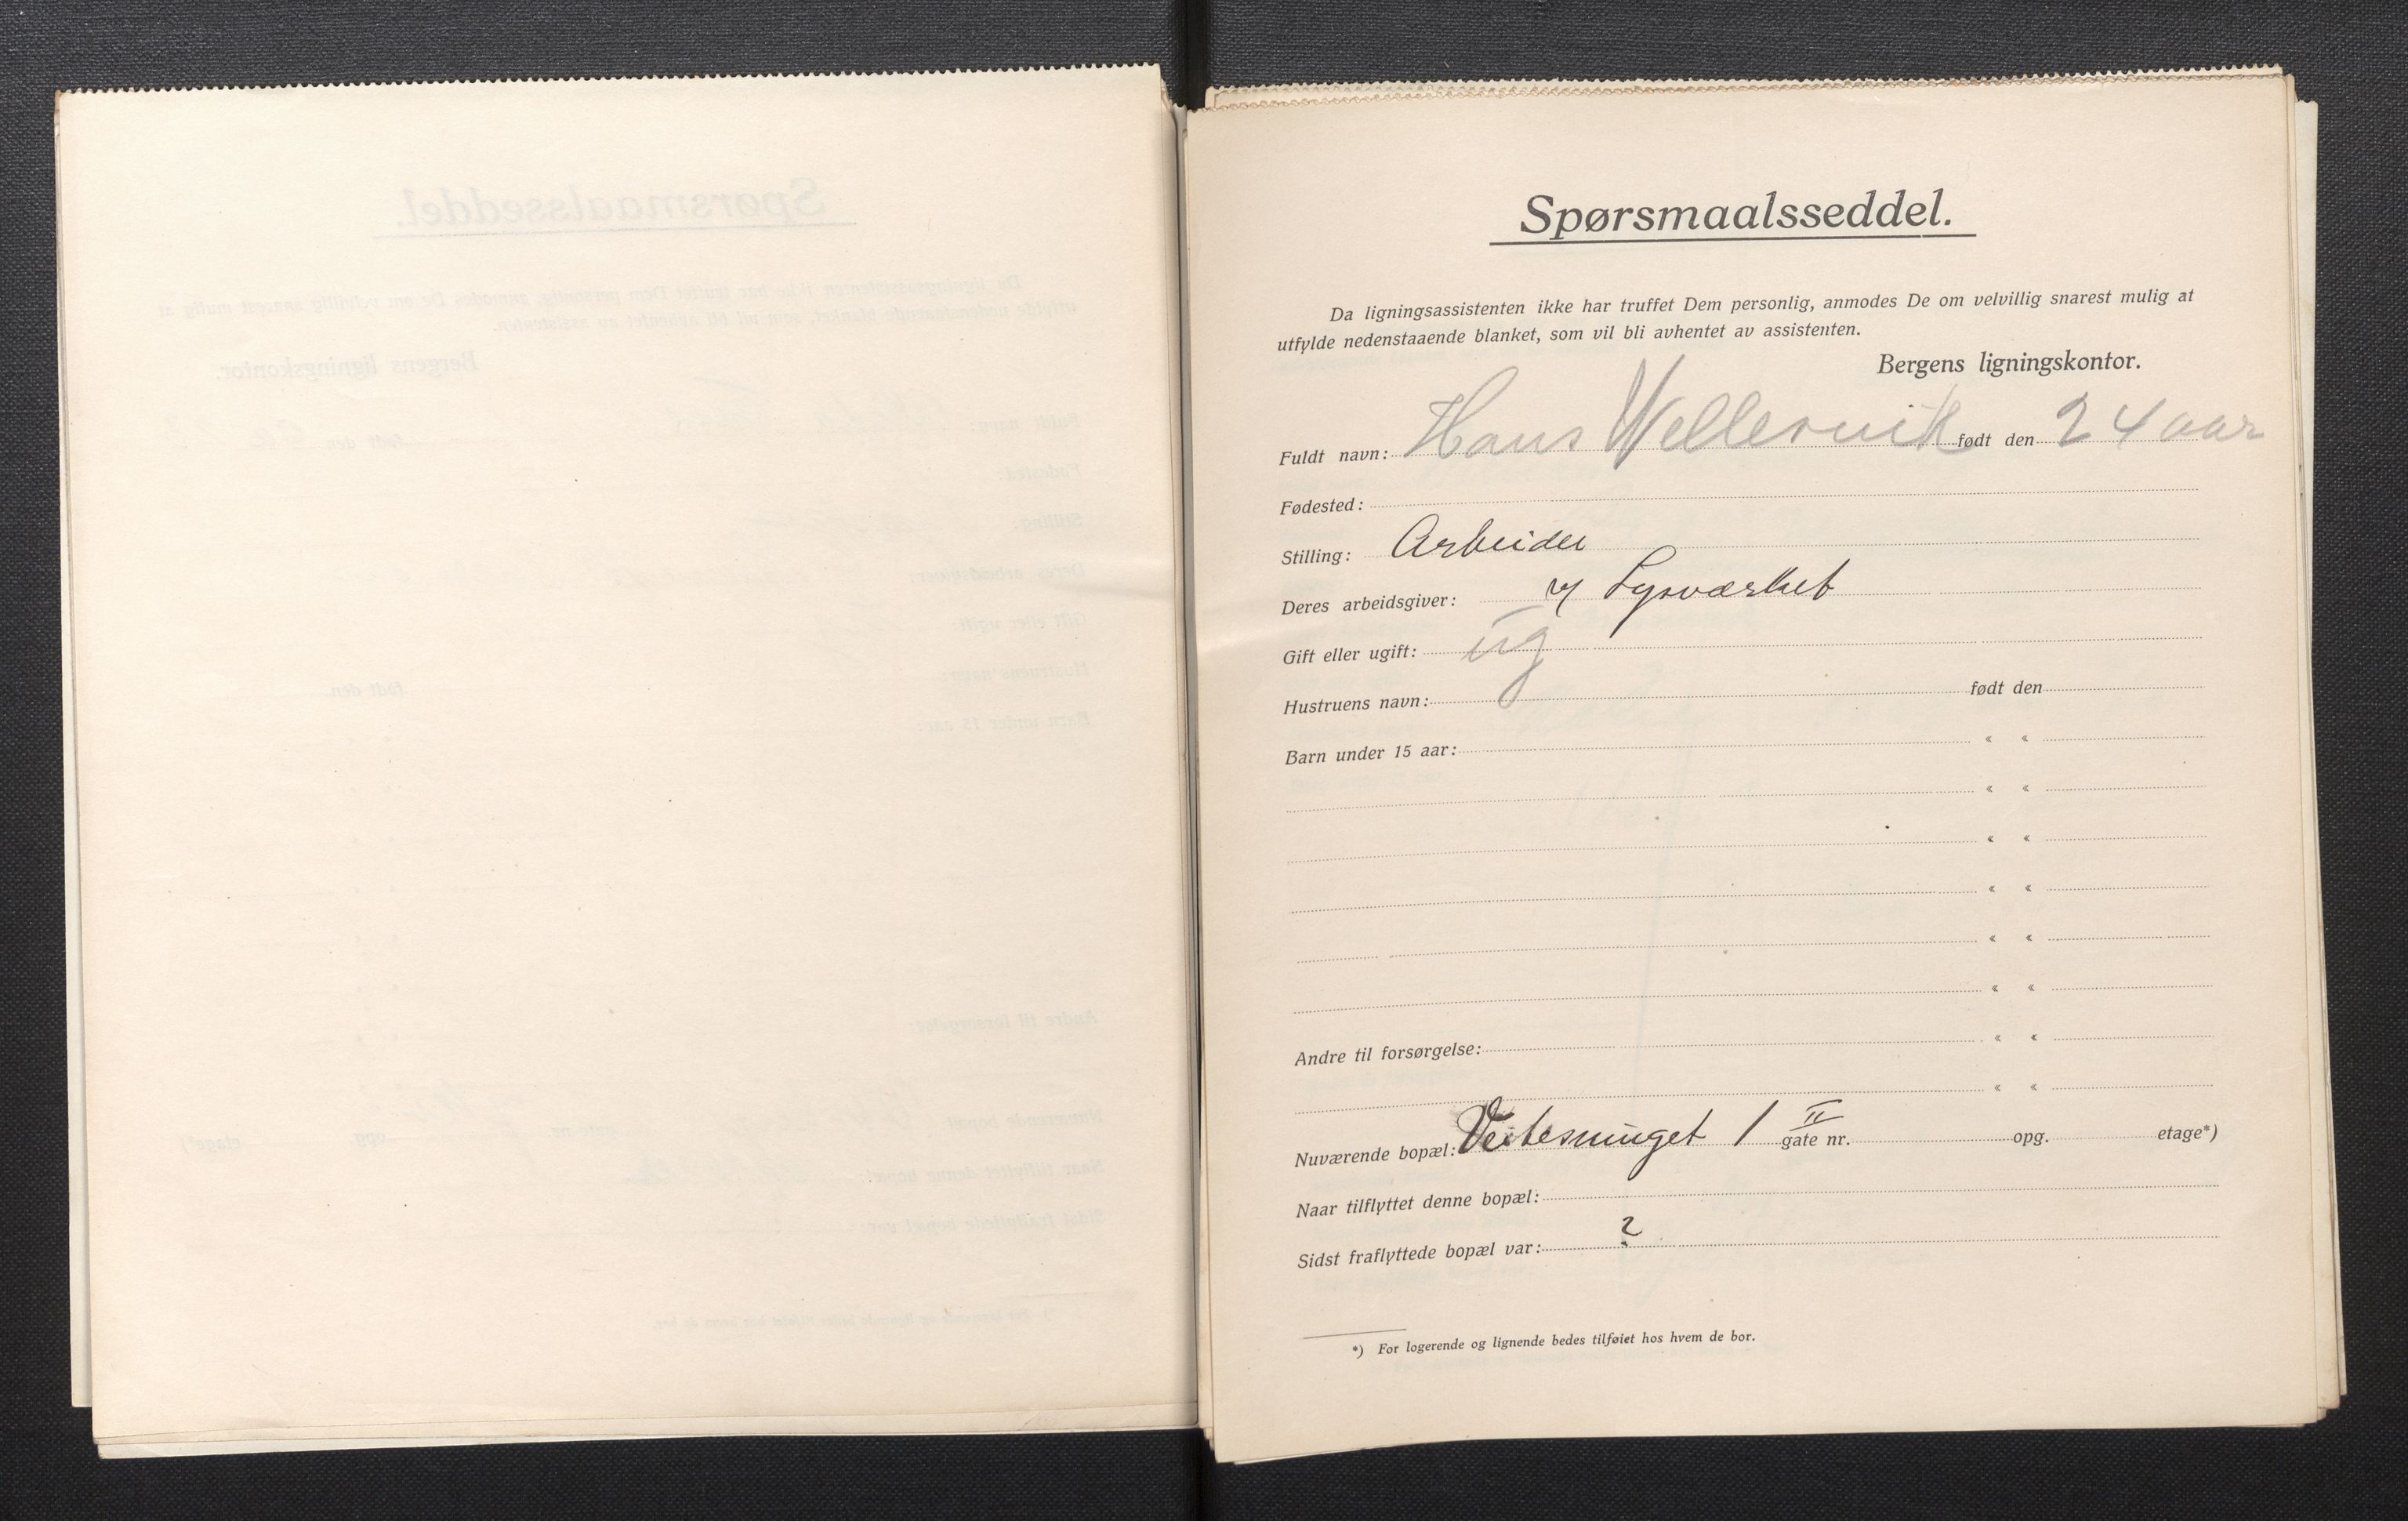 Spørsmaalsseddel.
Da ligningsassistenten ikke har truffet Dem personlig, anmodes De om velvillig snarest mulig at
utfylde nedenstaaende blanket, som vil bli avhentet av assistenten.
Bergens ligningskontor.
Fuldt navn: Hans Vellesvik født den 24 aar
Fødested:
Stilling: Arbeider
Deres arbeidsgiver: v/ Lysværket
Gift eller ugift: ug
Hustruens navn: født den
Barn under 15 aar: « «
« «
« «
« «
« «
« «
Andre til forsørgelse: « «
« «
Nuværende bopæl: Veitesmuget 1 II gate nr. opg. etage*)
Naar tilflyttet denne bopæl:
Sidst fraflyttede bopæl var: ?
*) For logerende og lignende bedes tilføiet hos hvem de bor.